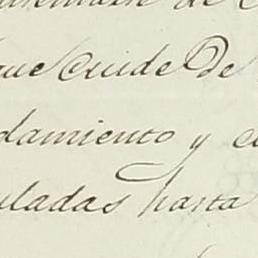 de
que Cuide De
damiento y e
uladas hasta